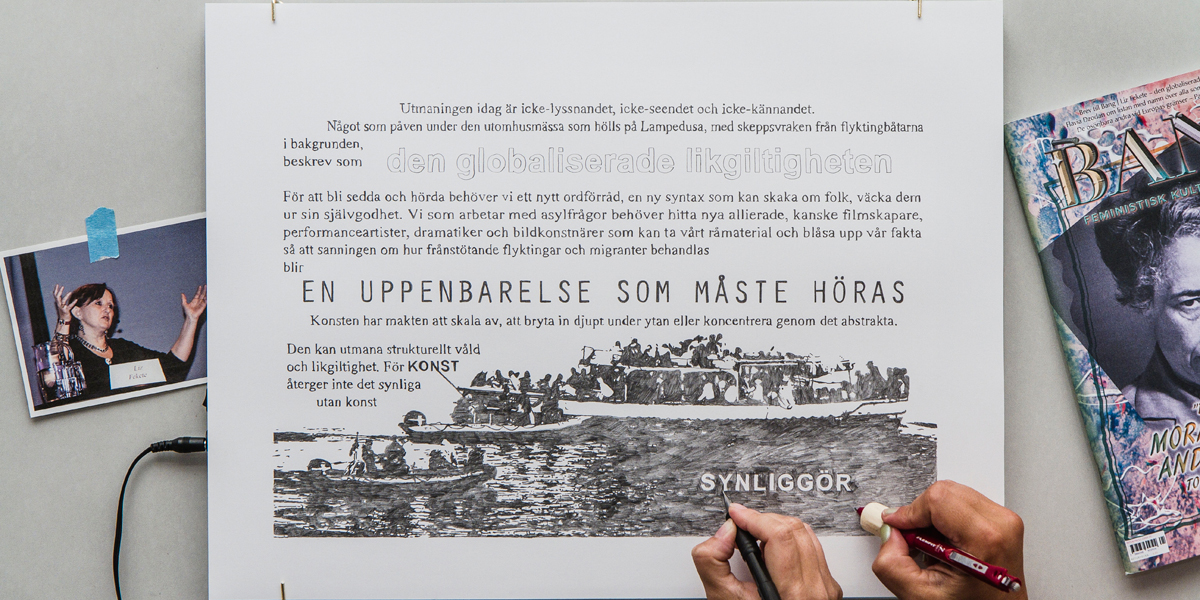 Utmaningen idag är icke-lyssnandet, icke-seendet och icke-kännandet.
Något som påven under den utomhusmässa som hölls på Lampedusa, med skeppsvraken från flyktingbåtarna
i bakgrunden,
beskrev som den globaliserade likgiltigheten
För att bli sedda och hörda behöver vi ett nytt ordförråd, en ny syntax som kan skaka om folk, väcka dem
ur sin självgodhet. Vi som arbetar med asylfrågor behöver hitta nya allierade, kanske filmskapare,
performanceartister, dramatiker och bildkonstnärer som kan ta vårt råmaterial och blåsa upp vår fakta
så att sanningen om hur frånstötande flyktingar och migranter behandlas
blir
EN UPPENBARELSE SOM MÅSTE HÖRAS
Konsten har makten att skala av, att bryta in djupt under ytan eller koncentrera genom det abstrakta.
Den kan utmana strukturellt våld
och likgiltighet. För KONST
återger inte det synliga
utan konst
SYNLIGGÖR
Brev till Bang | Liz Fekete – den globaliserade
BAN
FEMINISTISK KULT
MORA
AND
TO